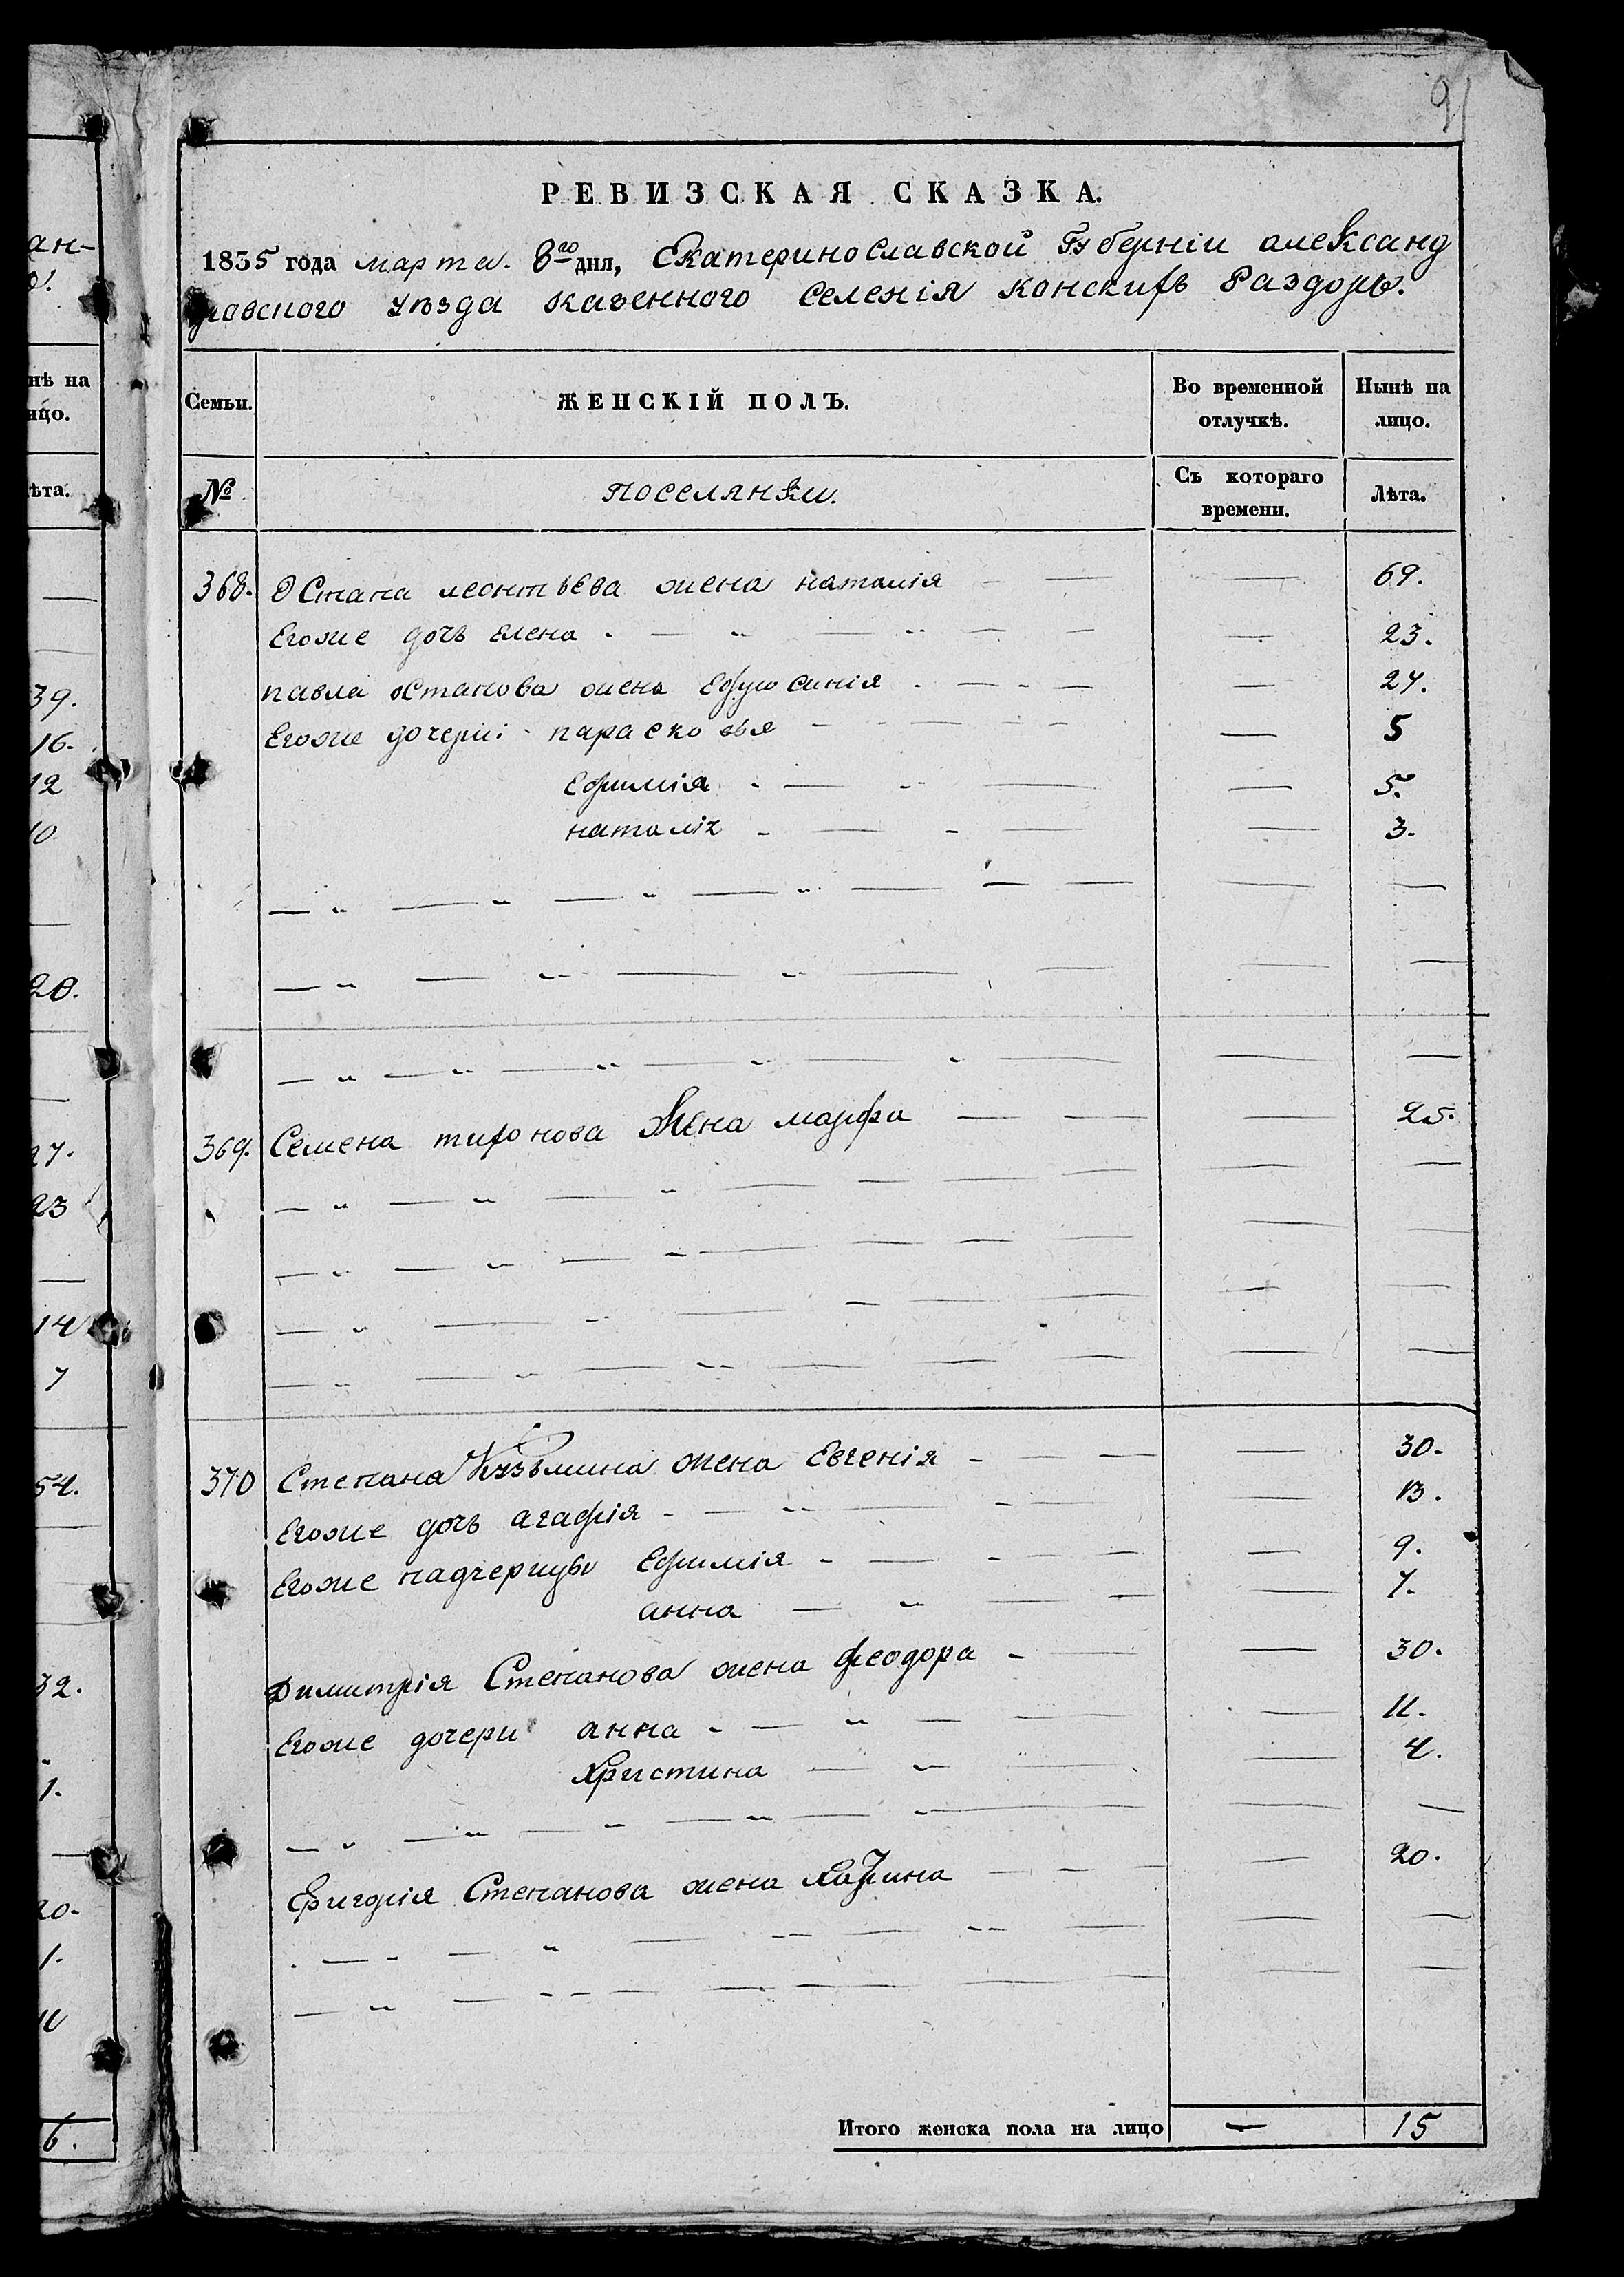 91
РЕВИЗСКАЯ СКАЗКА.
1835 года марта. 8го дня, Екатеринославской Губерніи александ
ровского уѣзда казенного Селенія конскихъ Раздоръ.
Семьи. ЖЕНСКІЙ ПОЛЪ. Во временной отлучкѣ. Нынѣ на лицо.
№ поселянки. Съ котораго времени. Лѣта.
368. Остапа леонтьева жена наталія — 69.
Егоже дочь елена — 23.
павла остапова жена Ефросинія — 24.
Егоже дочери: парасковья — 5
Ефимія — 5.
наталія — 3.
369. Семена тихонова жена марфа — 25.
370 Степана Кузьмина жена Евгенія — 30.
Егоже дочь агафія — 13.
Егоже падчерицы Ефимія — 9.
анна — 7.
Димитрія Степанова жена феодора — 30.
Егоже дочери анна — 11.
Христина — 4.
Степанова жена — 20.
Итого женска пола на лицо — 15
ан-
нѣ на
ицо.
ѣта.
39.
16.
12
10.
20.
27.
23
14
7
54.
32.
1.
20.
1.
11
6.